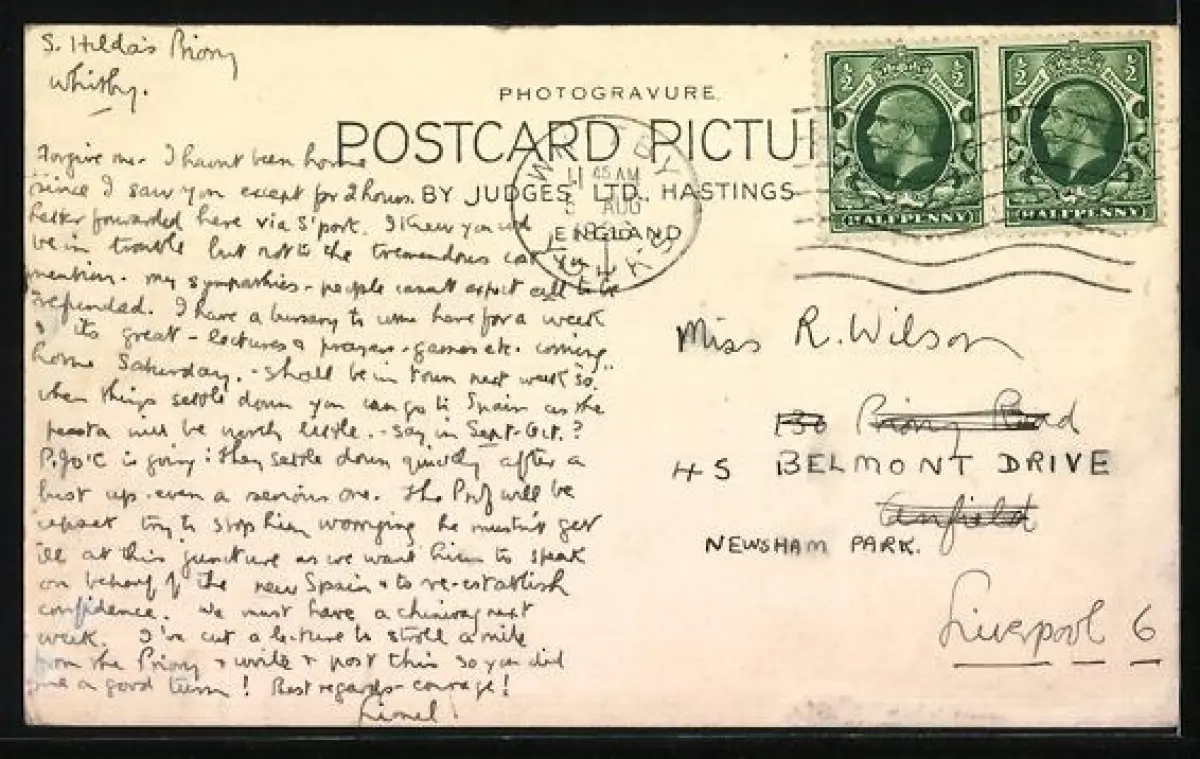 S. Hilda's Priory
Whitby.
PHOTOGRAVURE.
POSTCARD PICTU
BY JUDGES LTD., HASTINGS
ENGLAND
½ ½
HALFPENNY
½ ½
HALFPENNY
45 AM
AUG
Forgive me - I havnt been home
since I saw you except for 2 hours.
letter forwarded here via S'port. I knew you wd
be in trouble but not to the tremendous extent you
mention. my sympathies - people cannot expect all to be
refunded. I have a bursary to come here for a week
& its great - lectures & prayers - games etc. coming
home Saturday. - shall be in town next week so
when things settle down you can go to Spain as the
peseta will be worth little. - say in Sept-Oct.?
is going: they settle down quickly after a
bust up - even a serious one. The Prof will be
upset try to stop him worrying he mustn't get
ill at this juncture as we want him to speak
on behalf of the new Spain & to re-establish
confidence. We must have a chinwag next
week. I've cut a lecture to stroll a mile
from the Priory & write & post this so you did
me a good turn! Best regards - courage!
Lionel
Miss R. Wilson
130 Priory Road
45 BELMONT DRIVE
Anfield
NEWSHAM PARK.
Liverpool 6